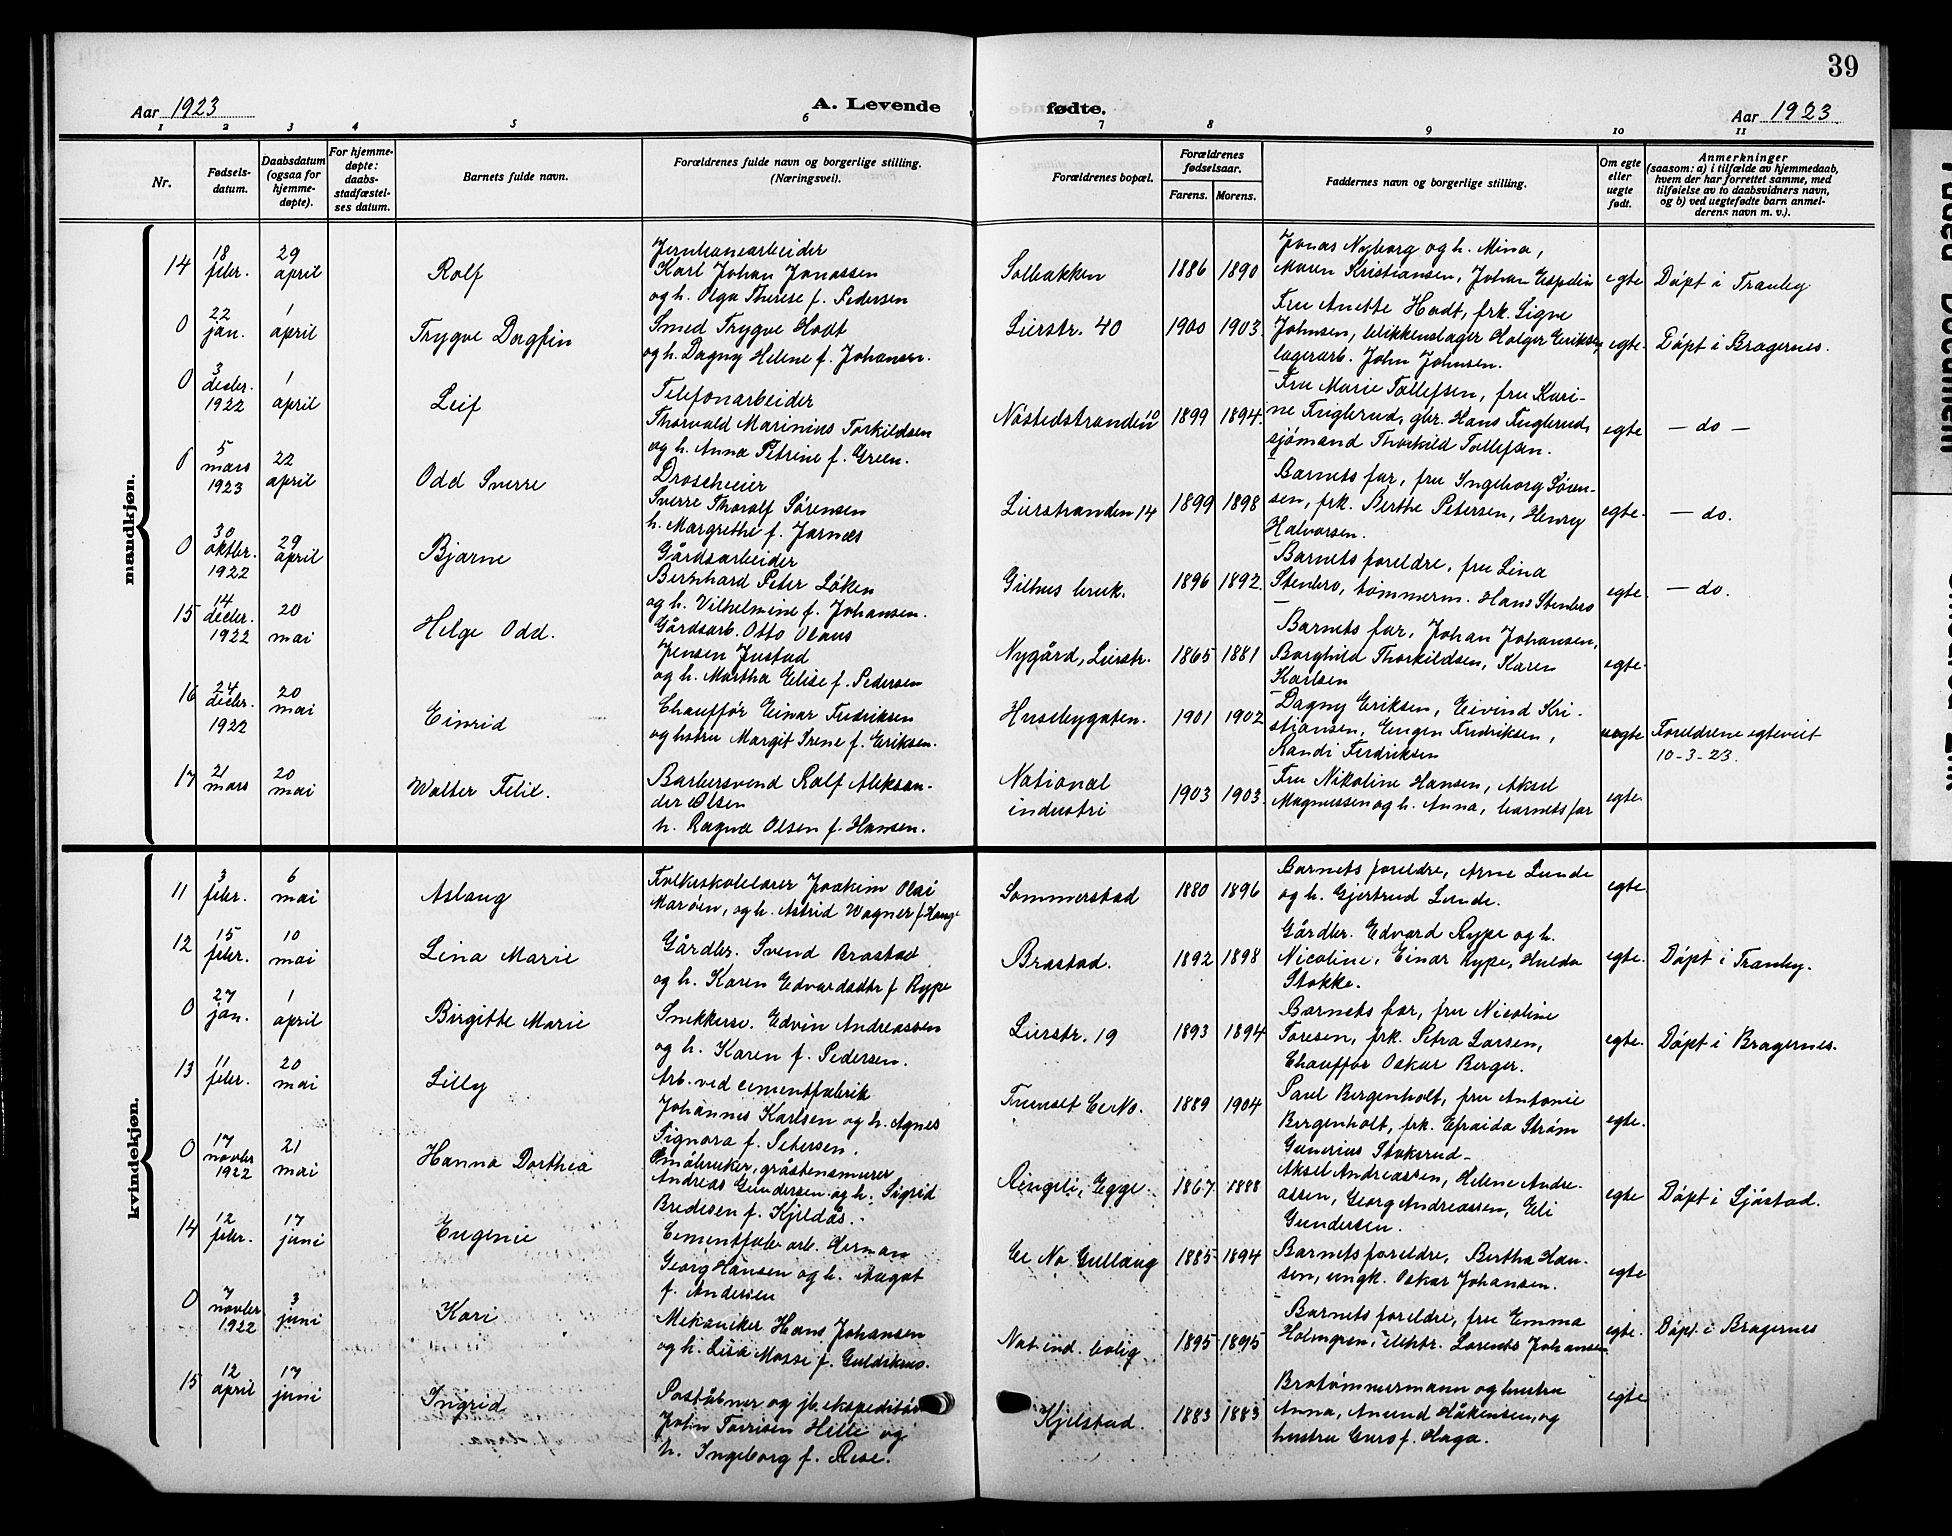 39
Aar 1923
A. Levende
fødte.
Aar 1923
1 2 3 4 5 6 7 8 9 10 11
Nr.
Fødsels-
datum.
Daabsdatum
(ogsaa for
hjemme-
døpte).
For hjemme-
døpte:
daabs-
stadfæstel-
ses datum.
Barnets fulde navn.
Forældrenes fulde navn og borgerlige stilling.
(Næringsvei).
Forældrenes bopæl.
Forældrenes
fødselsaar.
Farens. Morens.
Faddernes navn og borgerlige stilling.
Om egte
eller
uegte
født.
Anmerkninger
(saasom: a) i tilfælde av hjemmedaab,
hvem der har forrettet samme, med
tilføielse av to daabsvidners navn,
og b) ved uegtefødte barn anmel-
derens navn m. v.).
mandkjøn.
14
18
febr.
29
april
Rolf
Jernbanearbeider
Karl Johan Jonassen
og h. Olga Therese f. Pedersen
Solbakken
1886 1890
Jonas Nyborg og h. Mina,
Maren Kristiansen, Johan Espelin
egte
Döpt i Tranby
0
22
jan.
1
april
Trygve Dagfin
Smed Trygve Hodt
og h. Dagny Helene f. Johansen.
Lierstr. 40
1900 1903.
Fru Anette Hodt, frk. Signe
Johnsen, blikkenslager Holger Eriksen
lagerarb. John Johnsen.
egte.
Döpt i Bragernes.
0
3
decbr.
1922
1
april
Leif
Telefonarbeider
Thorvald Marinius Torkildsen
og h. Anna Petrine f. Green.
Nöstedstranden 10
1899 1894.
Fru Marie Tollefsen, fru Kari-
ne Fuglerud, gbr. Hans Fuglerud,
sjömand Thorkild Tollefsen.
egte
— do —
0
5
mars
1923
22
april
Odd Sverre
Droscheeier
Sverre Thoralf Sørensen
h. Margrethe f. Jarnæs
Lierstranden 14
1899 1898
Barnets far, fru Ingeborg Sören-
sen, frk. Berthe Petersen, Henry
Halvorsen.
egte.
— do.
0
30
oktbr.
1922
29
april
Bjarne
Gårdsarbeider
Bernhard Peter Löken
og h. Vilhelmine f. Johansen.
Gilhus bruk.
1896 1892.
Barnets foreldre, fru Lina
Stenbro, tömmerm. Hans Stenbro
egte.
— do.
15
14
decbr.
1922
20
mai
Helge Odd.
Gårdsarb. Otto Olaus
Jensen Justad
og h. Martha Elise f. Pedersen
Nygård, Lierstr.
1865 1881
Barnets far, Johan Johansen,
Borghild Thorkildsen, Karen
Karlsen
egte.
16
24
decbr.
1922
20
mai
Einrid
Chauffør Einar Fredriksen
og hstru Margit Irene f. Eriksen.
Husebygaten.
1901 1902
Dagny Eriksen, Eivind Kri-
stiansen, Eugen Fredriksen,
Randi Fredriksen
uegte
Foreldrene egteviet
10-3-23.
17
21
mars
20
mai
Walter Felix.
Barbersvend Rolf Aleksan-
der Olsen
h. Ragna Olsen f. Hansen.
National
industri
1903 1903.
Fru Nikoline Hansen, Aksel
Magnussen og h. Anna, barnets far
egte.
kvindekjøn.
11
3
febr.
6
mai
Aslaug
Folkeskolelærer Joakim Olai
Maröen, og h. Astrid Wagner f. Hauge
Sommerstad
1880 1896
Barnets foreldre, Arne Lunde
og h. Gjertrud Lunde.
egte
12
15
febr.
10
mai
Lina Marie
Gårdbr. Svend Brastad
og h. Karen Edvardsdtr f Rype
Brastad.
1892 1898
Gårdbr. Edvard Rype og h.
Nicoline, Einar Rype, Hulda
Stokke.
egte.
Döpt i Tranby.
0
27
jan.
1
april
Birgitte Marie
Snekkersv. Edvin Andreassen
og h. Karen f. Pedersen.
Lierstr. 19
1893 1894
Barnets far, fru Nicoline
Toresen, frk. Petra Larsen,
Chauffør Oskar Berger.
egte.
Döpt i Bragernes.
13
11
febr.
20
mai
Lilly
Arb. ved cementfabrik
Johannes Karlsen og h. Agnes
Signora f. Petersen.
1889 1904
Paul Bergenholt, fru Antonie
Bergenholt, frk. Efraida Strøm
Gunerius Stoksrud
egte.
0
17
novbr
1922
21
mai
Hanna Dorthea
Småbruker, gråstensmurer
Andreas Gundersen og h. Sigrid
Bredesen f. Kjeldås.
Ringeli, Egge.
1867 1888
Aksel Andreassen, Helene Andre-
assen, Georg Andreassen, Eli
Gundersen.
egte
Döpt i Sjåstad.
14
12
febr.
17
juni
Eugenie
Cementfab. arb. Herman
Georg Hansen og h. Aagot
f. Andersen
Ce No Gullaug
1885 1894
Barnets foreldre, Bertha Han-
sen, ungk. Oskar Johansen.
egte
0
7
novbr
1922
3
juni
Kari
Mekaniker Hans Johansen
og h. Lisa Mosse f. Guldiksen.
Nat ind. bolig
1895 1895
Barnets foreldre, fru Emma
Holmgren, elektr. Lorents Johansen
egte.
Döpt i Bragernes
15
12
april
17
juni
Ingrid
Poståbner og jb. ekspeditör
John Torrisen Hille og
h. Ingeborg f. Rese.
Kjelstad.
1883 1883
Brotömmermann og hustru
Anna, Amund Håkensen, og
hustru Guro f. Haga.
egte